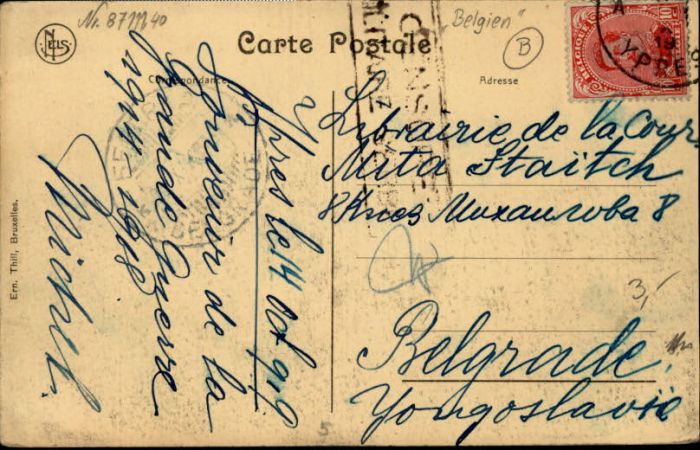 Nr. 8711140
"Belgien"
B
NELS
Carte Postale
Correspondance
Adresse
BELGIQUE
10
YPRES
BELGRADE
Ypres le 14 Oct 919
Souvenir de la
Grande Guerre
1914-1918
Michel.
Librairie de la Cour
Mita Staïtch
8 Кнез Михаилова 8
Belgrade.
Yougoslavie
3,-
Ern. Thill, Bruxelles.
5